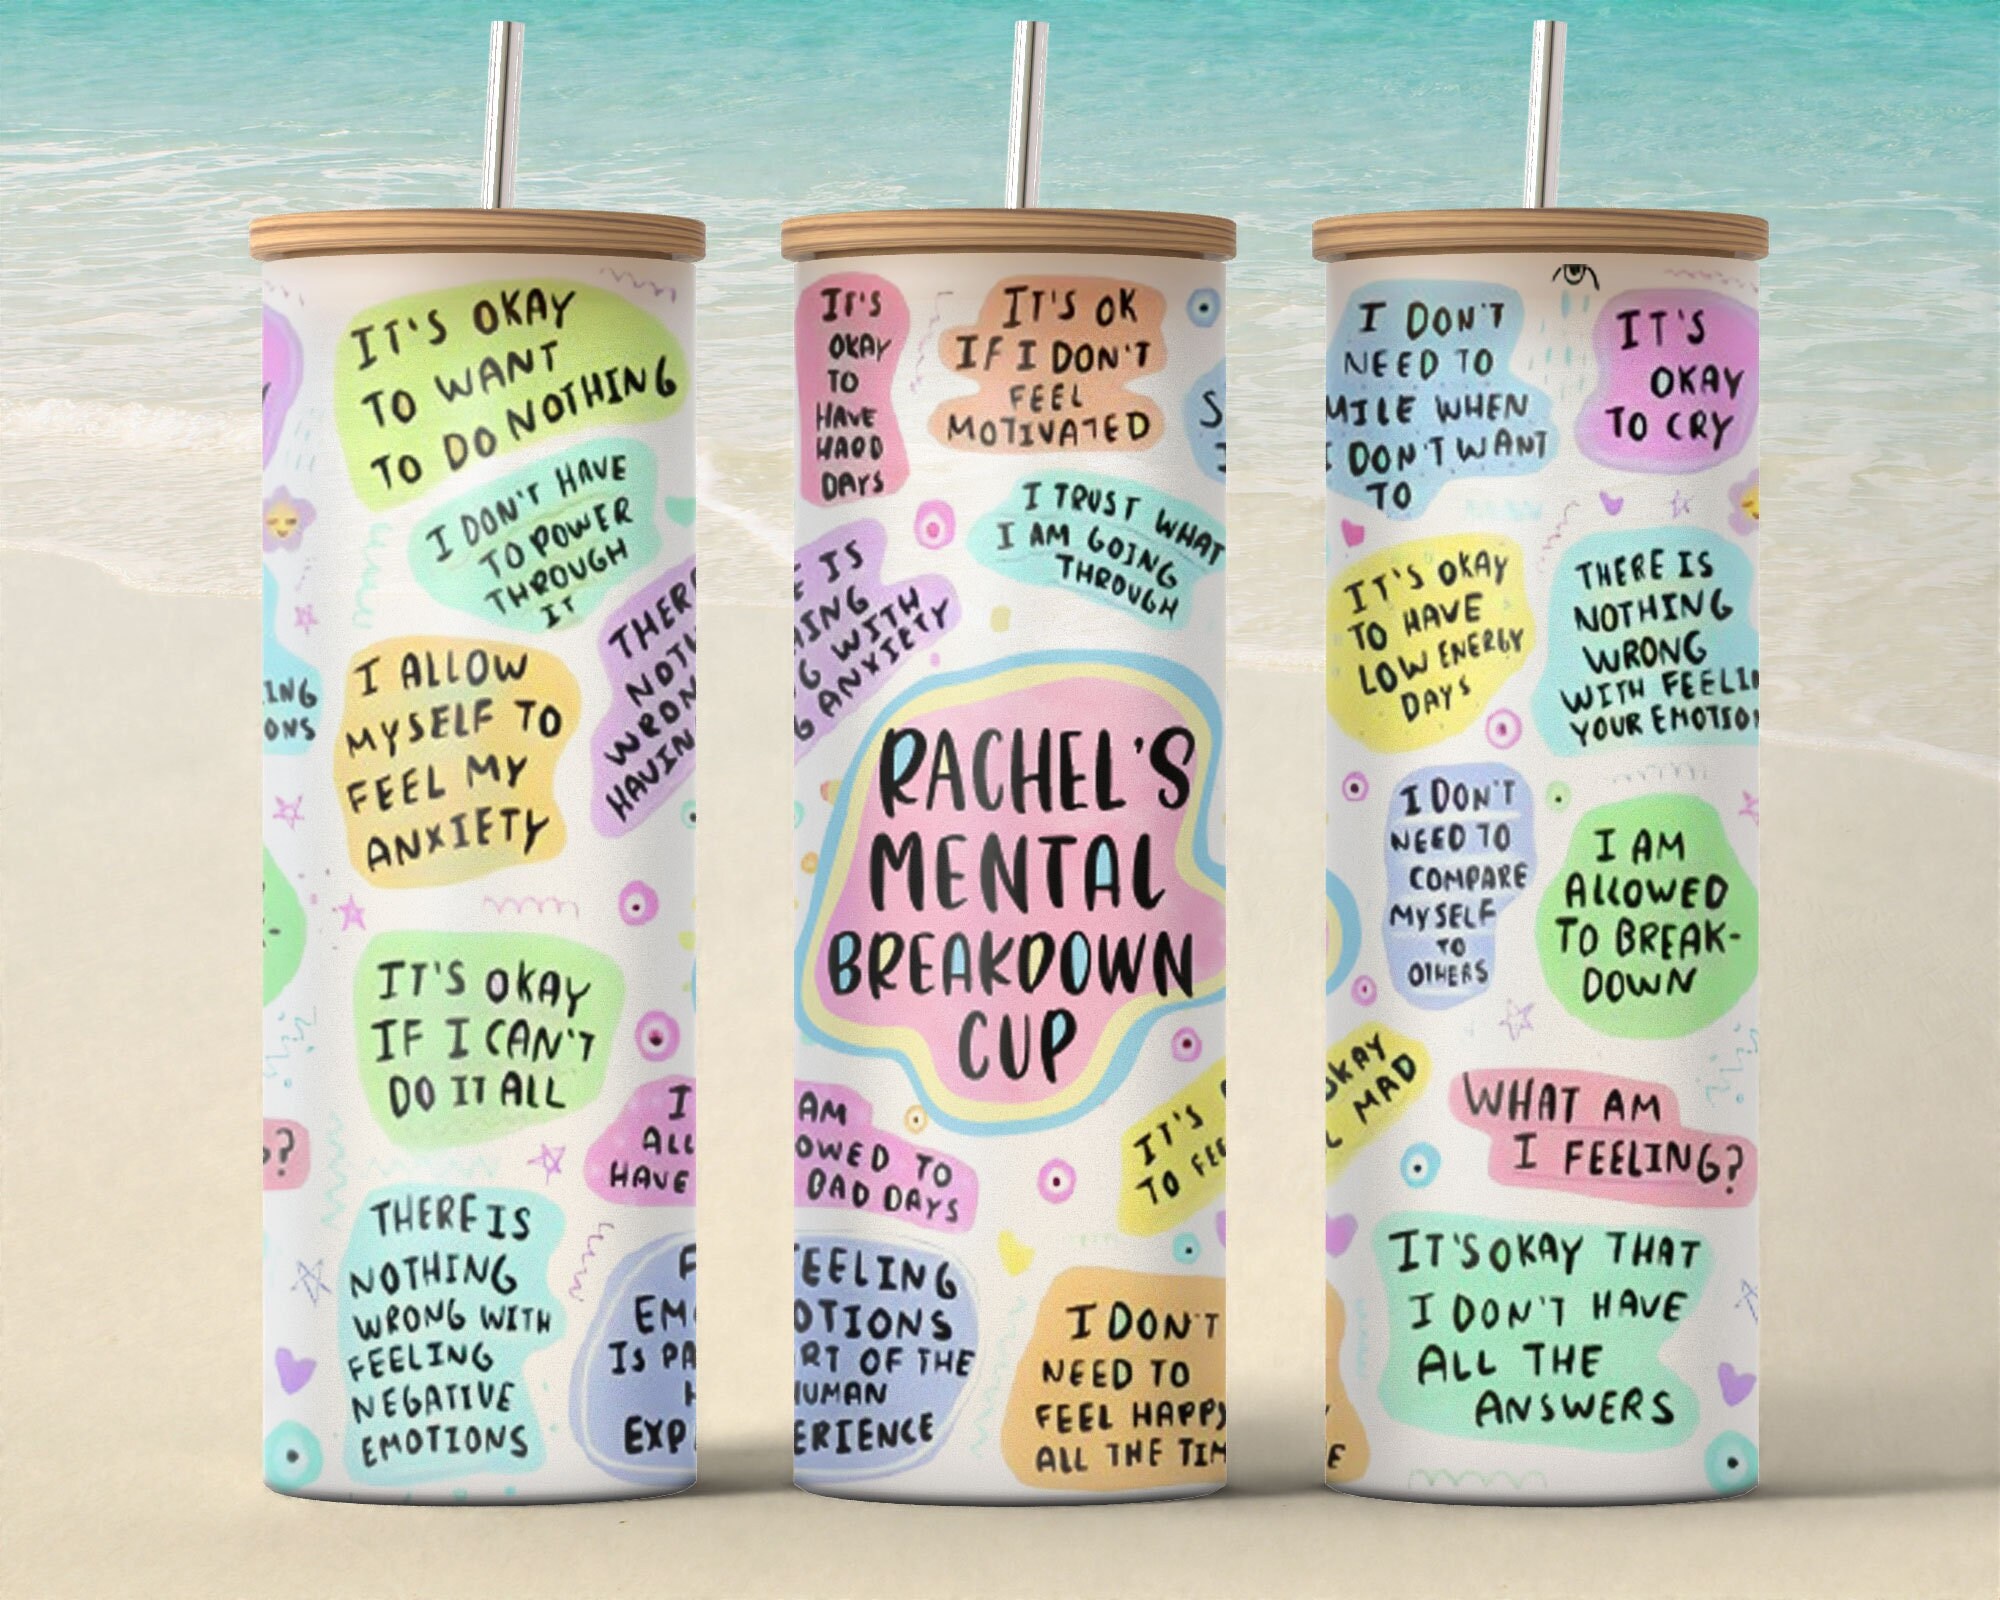 IT'S OKAY
TO WANT
TO DO NOTHING
I DON'T HAVE
TO POWER
THROUGH
IT
I ALLOW
MYSELF TO
FEEL MY
ANXIETY
IT'S OKAY
IF I CAN'T
DO IT ALL
THERE IS
NOTHING
WRONG WITH
FEELING
NEGATIVE
EMOTIONS
I
ALL
HAVE
EM
IS PA
H
EXP
IT'S
OKAY
TO
HAVE
HARD
DAYS
IT'S OK
IF I DON'T
FEEL
MOTIVATED
I TRUST WHAT
I AM GOING
THROUGH
E IS
HING
G WITH
G ANXIETY
RACHEL'S
MENTAL
BREAKDOWN
CUP
AM
OWED TO
BAD DAYS
IT'S
TO FEE
EELING
OTIONS
RT OF THE
HUMAN
ERIENCE
I DON'T
NEED TO
FEEL HAPPY
ALL THE TIM
I DON'T
NEED TO
MILE WHEN
I DON'T WANT
TO
IT'S
OKAY
TO CRY
IT'S OKAY
TO HAVE
LOW ENERGY
DAYS
THERE IS
NOTHING
WRONG
WITH FEELIN
YOUR EMOTION
I DON'T
NEED TO
COMPARE
MYSELF
TO
OTHERS
I AM
ALLOWED
TO BREAK-
DOWN
OKAY
L MAD
WHAT AM
I FEELING?
IT'S OKAY THAT
I DON'T HAVE
ALL THE
ANSWERS